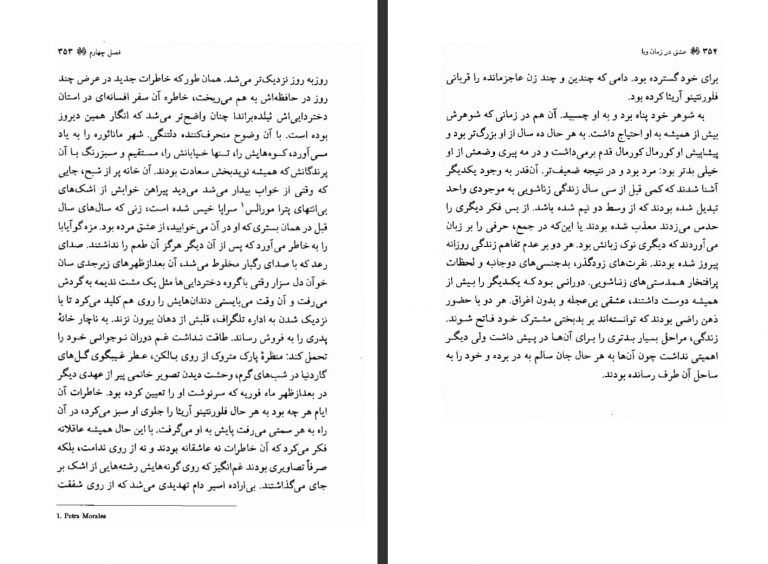 فصل چهارم ۳۵۳
روزبه روز نزدیک‌تر می‌شد. همان طور که خاطرات جدید در عرض چند
روز در حافظه‌اش به هم می‌ریخت، خاطره آن سفر افسانه‌ای در استان
دختردایی‌اش ئیلده‌براندا چنان واضح‌تر می‌شد که انگار همین دیروز
بوده است. با آن وضوح منحرف‌کننده دلتنگی. شهر مانائوره را به یاد
می‌آورد، کوه‌هایش را، تنها خیابانش را، مستقیم و سبزرنگ با آن
پرندگانش که همیشه نویدبخش سعادت بودند. آن خانه پر از شبح، جایی
که وقتی از خواب بیدار می‌شد می‌دید پیراهن خوابش از اشک‌های
بی‌انتهای پترا مورالس۱ سراپا خیس شده است، زنی که سال‌های سال
قبل در همان بستری که او در آن می‌خوابید، از عشق مرده بود. مزه گوآیابا
را به خاطر می‌آورد که پس از آن دیگر هرگز آن طعم را نداشتند. صدای
رعد که با صدای رگبار مخلوط می‌شد، آن بعدازظهرهای زبرجدی سان
خوآن دل سزار وقتی با گروه دختردایی‌ها مثل یک مشت ندیمه به گردش
می‌رفت و آن وقت می‌بایستی دندان‌هایش را روی هم کلید می‌کرد تا با
نزدیک شدن به اداره تلگراف، قلبش از دهان بیرون نزند. به ناچار خانهٔ
پدری را به فروش رساند. طاقت نداشت غم دوران نوجوانی خود را
تحمل کند: منظرهٔ پارک متروک از روی بالکن، عطر غیبگوی گل‌های
گاردنیا در شب‌های گرم، وحشت دیدن تصویر خانمی پیر از عهدی دیگر
در بعدازظهر ماه فوریه که سرنوشت او را تعیین کرده بود. خاطرات آن
ایام هر چه بود به هر حال فلورنتینو آریثا را جلوی او سبز می‌کرد، در آن
راه به هر سمتی می‌رفت پایش به او می‌گرفت. با این حال همیشه عاقلانه
فکر می‌کرد که آن خاطرات نه عاشقانه بودند و نه از روی ندامت، بلکه
صرفاً تصاویری بودند غم‌انگیز که روی گونه‌هایش رشته‌هایی از اشک بر
جای می‌گذاشتند. بی‌اراده اسیر دام تهدیدی می‌شد که از روی شفقت
1. Petra Morales
۳۵۴ عشق در زمان وبا
برای خود گسترده بود. دامی که چندین و چند زن عاجزمانده را قربانی
فلورنتینو آریثا کرده بود.
به شوهر خود پناه برد و به او چسبید. آن هم در زمانی که شوهرش
بیش از همیشه به او احتیاج داشت. به هر حال ده سال از او بزرگ‌تر بود و
پیشاپیش او کورمال کورمال قدم برمی‌داشت و در مه پیری وضعش از او
خیلی بدتر بود: مرد بود و در نتیجه ضعیف‌تر. آن‌قدر به وجود یکدیگر
آشنا شدند که کمی قبل از سی سال زندگی زناشویی به موجودی واحد
تبدیل شده بودند که از وسط دو نیم شده باشد. از بس فکر دیگری را
حدس می‌زدند معذب شده بودند یا این‌که در جمع، حرفی را بر زبان
می‌آوردند که دیگری نوک زبانش بود. هر دو بر عدم تفاهم زندگی روزانه
پیروز شده بودند. نفرت‌های زودگذر، بدجنسی‌های دوجانبه و لحظات
پرافتخار همدستی‌های زناشویی. دورانی بود که یکدیگر را بیش از
همیشه دوست داشتند، عشقی بی‌عجله و بدون اغراق. هر دو با حضور
ذهن راضی بودند که توانسته‌اند بر بدبختی مشترک خود فاتح شوند.
زندگی، مراحل بسیار بدتری را برای آن‌ها در پیش داشت ولی دیگر
اهمیتی نداشت چون آن‌ها به هر حال جان سالم به در برده و خود را به
ساحل آن طرف رسانده بودند.